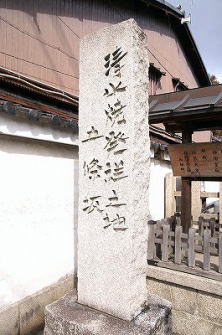 清水焼発祥之地
五條坂